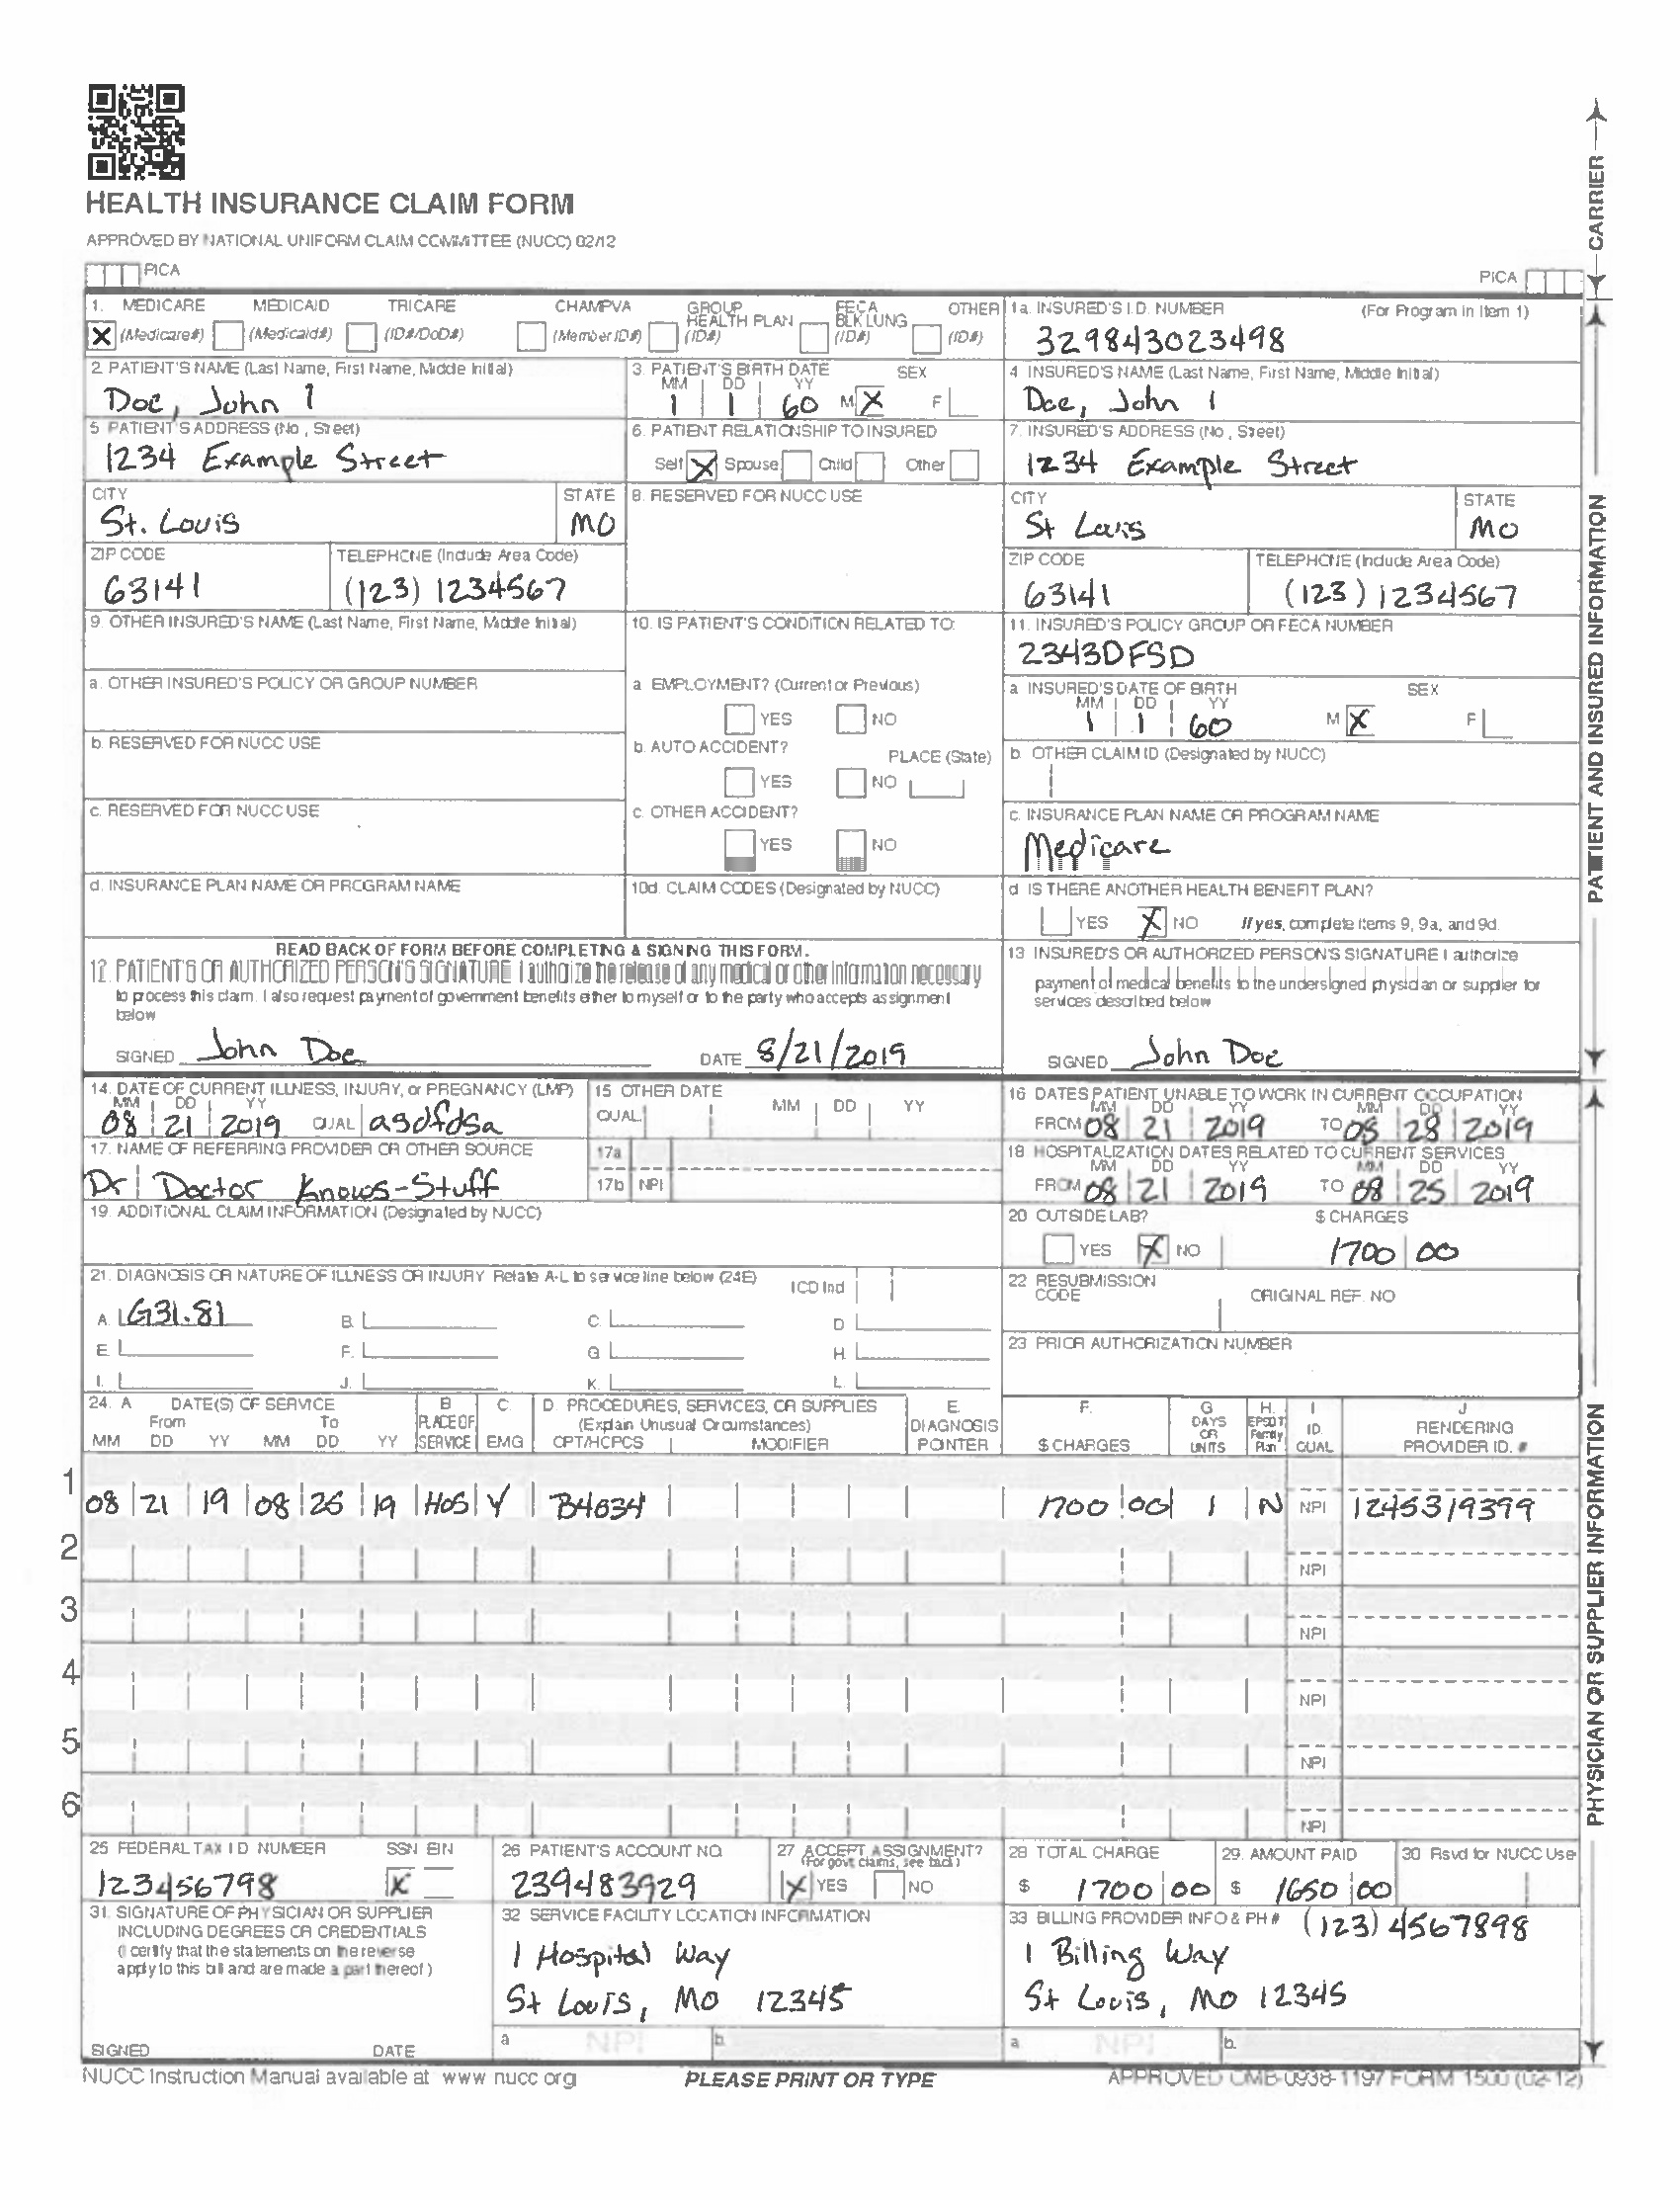 HEALTH INSURANCE CLAIM FORM
APPROVED BY NATIONAL UNIFORM CLAIM COMMITTEE (NUCC) 02/12
PICA
PICA
CARRIER
1. MEDICARE MEDICAID TRICARE CHAMPVA GROUP HEALTH PLAN FECA BLK LUNG OTHER
X (Medicare#) (Medicaid#) (ID#/DoD#) (Member ID#) (ID#) (ID#) (ID#)
1a. INSURED'S I.D. NUMBER (For Program in Item 1)
329843023498
2. PATIENT'S NAME (Last Name, First Name, Middle Initial)
Doe, John 1
3. PATIENT'S BIRTH DATE SEX
MM DD YY
1 1 60 M X F
4 INSURED'S NAME (Last Name, First Name, Middle Initial)
Doe, John 1
5 PATIENT'S ADDRESS (No., Street)
1234 Example Street
6. PATIENT RELATIONSHIP TO INSURED
Self X Spouse Child Other
7. INSURED'S ADDRESS (No., Street)
1234 Example Street
CITY STATE
St. Louis MO
8. RESERVED FOR NUCC USE
CITY STATE
St Louis MO
ZIP CODE TELEPHONE (Include Area Code)
63141 (123) 1234567
ZIP CODE TELEPHONE (Include Area Code)
63141 (123) 1234567
9. OTHER INSURED'S NAME (Last Name, First Name, Middle Initial)
10. IS PATIENT'S CONDITION RELATED TO:
11. INSURED'S POLICY GROUP OR FECA NUMBER
2343DFSD
a. OTHER INSURED'S POLICY OR GROUP NUMBER
a EMPLOYMENT? (Current or Previous)
YES NO
a INSURED'S DATE OF BIRTH SEX
MM DD YY
1 1 60 M X F
b. RESERVED FOR NUCC USE
b. AUTO ACCIDENT? PLACE (State)
YES NO
b. OTHER CLAIM ID (Designated by NUCC)
c. RESERVED FOR NUCC USE
c. OTHER ACCIDENT?
YES NO
c. INSURANCE PLAN NAME OR PROGRAM NAME
Medicare
d. INSURANCE PLAN NAME OR PROGRAM NAME
10d. CLAIM CODES (Designated by NUCC)
d IS THERE ANOTHER HEALTH BENEFIT PLAN?
YES X NO If yes, complete items 9, 9a, and 9d.
PATIENT AND INSURED INFORMATION
READ BACK OF FORM BEFORE COMPLETING & SIGNING THIS FORM.
12. PATIENT'S OR AUTHORIZED PERSON'S SIGNATURE I authorize the release of any medical or other information necessary
to process this claim. I also request payment of government benefits either to myself or to the party who accepts assignment
below
SIGNED John Doe DATE 8/21/2019
13 INSURED'S OR AUTHORIZED PERSON'S SIGNATURE I authorize
payment of medical benefits to the undersigned physician or supplier for
services described below
SIGNED John Doe
14. DATE OF CURRENT ILLNESS, INJURY, or PREGNANCY (LMP)
MM DD YY
08 21 2019 QUAL asdfdsa
15 OTHER DATE
QUAL MM DD YY
16 DATES PATIENT UNABLE TO WORK IN CURRENT OCCUPATION
MM DD YY MM DD YY
FROM 08 21 2019 TO 08 28 2019
17. NAME OF REFERRING PROVIDER OR OTHER SOURCE
Dr Doctor Knows-Stuff
17a
17b NPI
18 HOSPITALIZATION DATES RELATED TO CURRENT SERVICES
MM DD YY MM DD YY
FROM 08 21 2019 TO 08 25 2019
19. ADDITIONAL CLAIM INFORMATION (Designated by NUCC)
20 OUTSIDE LAB? $ CHARGES
YES X NO 1700 00
21. DIAGNOSIS OR NATURE OF ILLNESS OR INJURY Relate A-L to service line below (24E) ICD Ind
A. G31.81 B. C. D
E. F. G H.
I. J. K. L.
22 RESUBMISSION CODE ORIGINAL REF. NO
23 PRIOR AUTHORIZATION NUMBER
24. A DATE(S) OF SERVICE B C. D. PROCEDURES, SERVICES, OR SUPPLIES E. F. G H. I J
From To PLACE OF (Explain Unusual Circumstances) DIAGNOSIS DAYS OR UNITS EPSDT Family Plan ID. RENDERING
MM DD YY MM DD YY SERVICE EMG CPT/HCPCS MODIFIER POINTER $ CHARGES QUAL PROVIDER ID. #
1
08 21 19 08 25 19 HOS Y B4034 1700 00 1 N NPI 1245319399
2
NPI
3
NPI
4
NPI
5
NPI
6
NPI
PHYSICIAN OR SUPPLIER INFORMATION
25 FEDERAL TAX I D NUMBER SSN EIN
123456798 X
26 PATIENT'S ACCOUNT NO.
239483929
27 ACCEPT ASSIGNMENT?
(For govt claims, see back)
X YES NO
28 TOTAL CHARGE
$ 1700 00
29. AMOUNT PAID
$ 1650 00
30 Rsvd for NUCC Use
31. SIGNATURE OF PHYSICIAN OR SUPPLIER
INCLUDING DEGREES OR CREDENTIALS
(I certify that the statements on the reverse
apply to this bill and are made a part thereof)
SIGNED DATE
32 SERVICE FACILITY LOCATION INFORMATION
1 Hospital Way
St Louis, MO 12345
a NPI b.
33 BILLING PROVIDER INFO & PH # (123) 4567898
1 Billing Way
St Louis, MO 12345
a NPI b.
NUCC Instruction Manual available at www nucc org
PLEASE PRINT OR TYPE
APPROVED OMB-0938-1197 FORM 1500 (02-12)